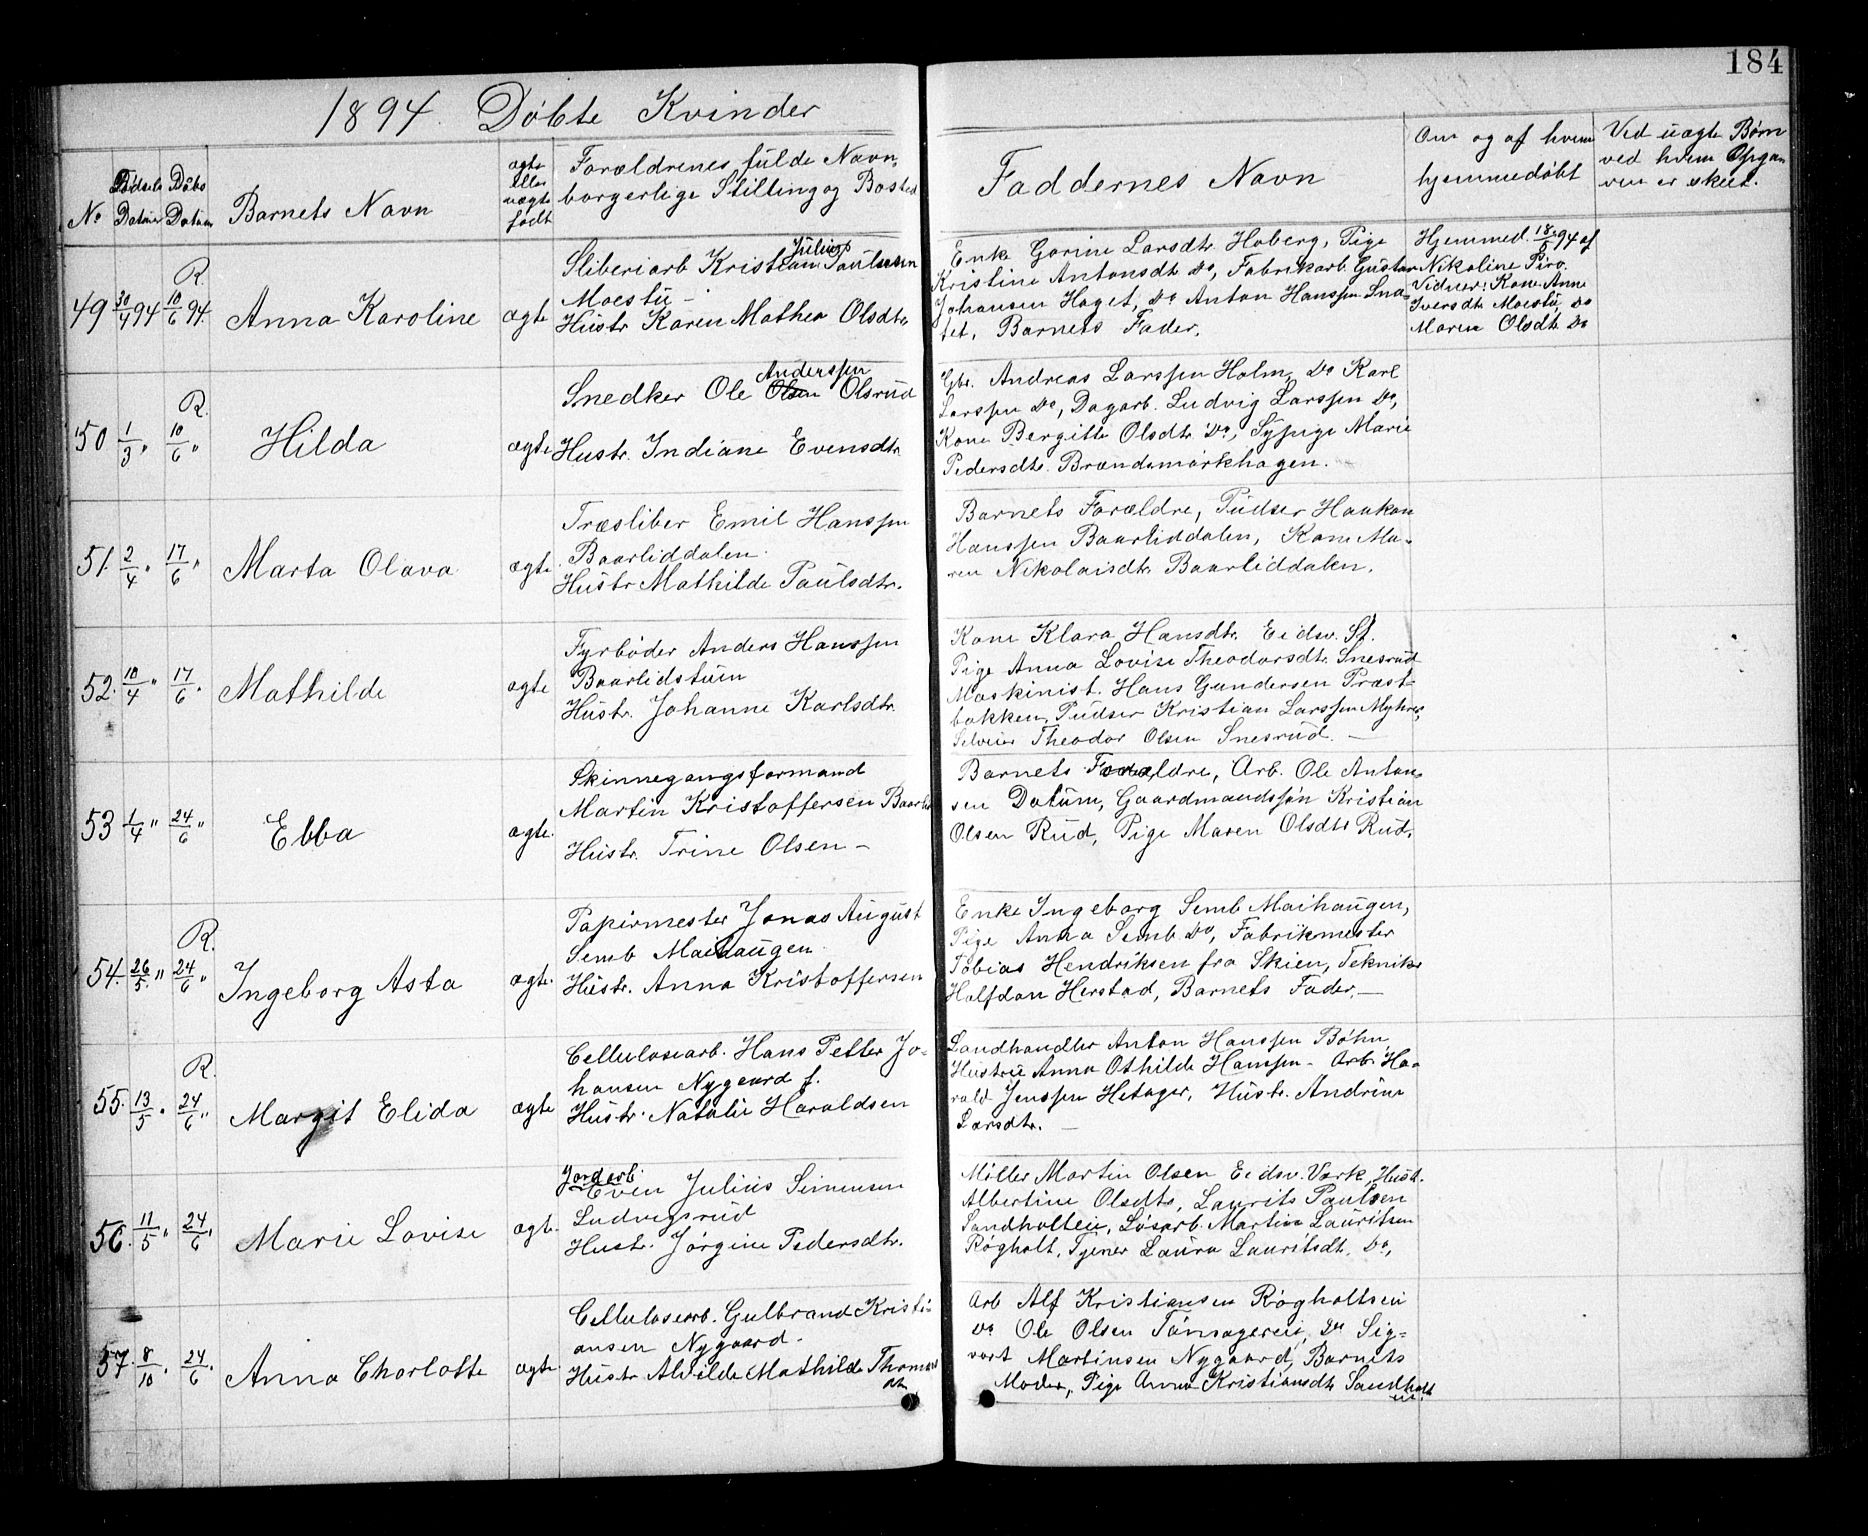 184
1894. Döbte Kvinder
No
Fødsels Datum
Döbs Datum
Barnets Navn
ægte
eller
uægte
født
Forældrenes fulde Navn,
borgerlige Stilling og Bosted
Faddernes Navn
Om og af hvem
hjemmedöbt
Ved uægte Børn
ved hvem Opgav
ven er skeet.
49 30/4 94 R. 10/6 94. Anna Karoline ægte
Sliberiarb Kristian Julius Paulsen
Moestu -
Hustr Karen Mathea Olsdtr
Enke Gorine Larsdtr. Hoberg, Pige
Kristine Antonsdtr Do, Fabrikarb. Gustav
Johansen Haget, Do Anton Hanssen Sna-
tet, Barnets Fader.
Hjemmed. 18/5 94 af
Nikoline Piro.
Vidner: Kone Anne
Iversdtr Moestu, Do
Maren Olsdtr Do
50 1/3 " R. 10/6 " Hilda ægte
Snedker Ole Anderssen Olsen Olsrud
Hustr. Indiane Evensdtr.
Gbr. Andreas Larssen Holm, Do Karl
Larssen Do, Dagarb. Ludvig Larssen Do,
Kone Bergitte Olsdtr Do, Sypige Marie
Pedersdtr. Brændsmørkhagen.
51. 2/4 " 17/6 " Marta Olava ægte.
Træsliber Emil Hanssen
Baarliddalen.
Hustr Mathilde Paulsdtr.
Barnets Forældre, Pudser Haakon
Hanssen Baarliddalen, Kone Ma-
ren Nikolaisdtr. Baarliddalen.
52. 10/4 " 17/6 " Mathilde ægte
Fyrbøder Anders Hanssen
Baarlidstuen
Hustr. Johanne Karlsdtr.
Kone Klara Hansdtr. Eidsv. St.
Pige Anna Lovise Theodorsdtr. Snesrud
Maskinist. Hans Gundersen Præst-
bakken, Pudser Kristian Larssen Myhrer,
Theodor Olsen Snesrud. -
53 1/4 " 24/6 " Ebba ægte.
Skinnegangsformand
Martin Kristoffersen Baarlid
Hustr. Trine Olsen -
Barnets Forældre, Arb. Ole Anton-
sen Datum, Gaardmandssøn Kristian
Olsen Rud, Pige Maren Olsdtr Rud.
54. 26/5 " R. 24/6 " Ingeborg Asta ægte.
Papirmester Jonas August
Semb Maihaugen.
Hustr. Anna Kristoffersen
Enke Ingeborg Semb Maihaugen,
Pige Anna Semb Do, Fabrikmester
Tobias Hendriksen fra Skien, Tekniker
Halfdan Herstad, Barnets Fader. -
55. 13/5 " R. 24/6 " Margit Elida ægte
Cellulosearb. Hans Petter Jo-
hansen Nygaard f.
Hustr. Natalie Haraldsen
Landhandler Anton Hanssen Bøhn,
Hustru Anna Othilde Hanssen - Arb. Ha-
rald Jenssen Hetager, Hustr. Andrine
Larsdtr. -
56. 11/5 " 24/6 " Marie Lovise ægte.
Jordarb.
Even Julius Simensen
Ludvigsrud
Hustr. Jørgine Pedersdtr.
Møller Martin Olsen Eidsv. Værk, Hustr.
Albertine Olsdtr, Laurits Paulsen
Sandholteie, Løsarb. Martin Lauritsen
Røgholt, Tjener Laura Lauritsdt. Do,
57. 8/10 " 24/6 " Anna Charlotte ægte
Cellulosearb. Gulbrand Kristi-
ansen Nygaard.
Hustr Alvilde Mathilde Thomas
dtr
Arb Alf Kristiansen Røgholtsei
Do Ole Olsen Tömageriei, Do Sig-
vart Martinsen Nygaard, Barnets
Moder, Pige Anna Kristiansdtr Sandholt
ei.